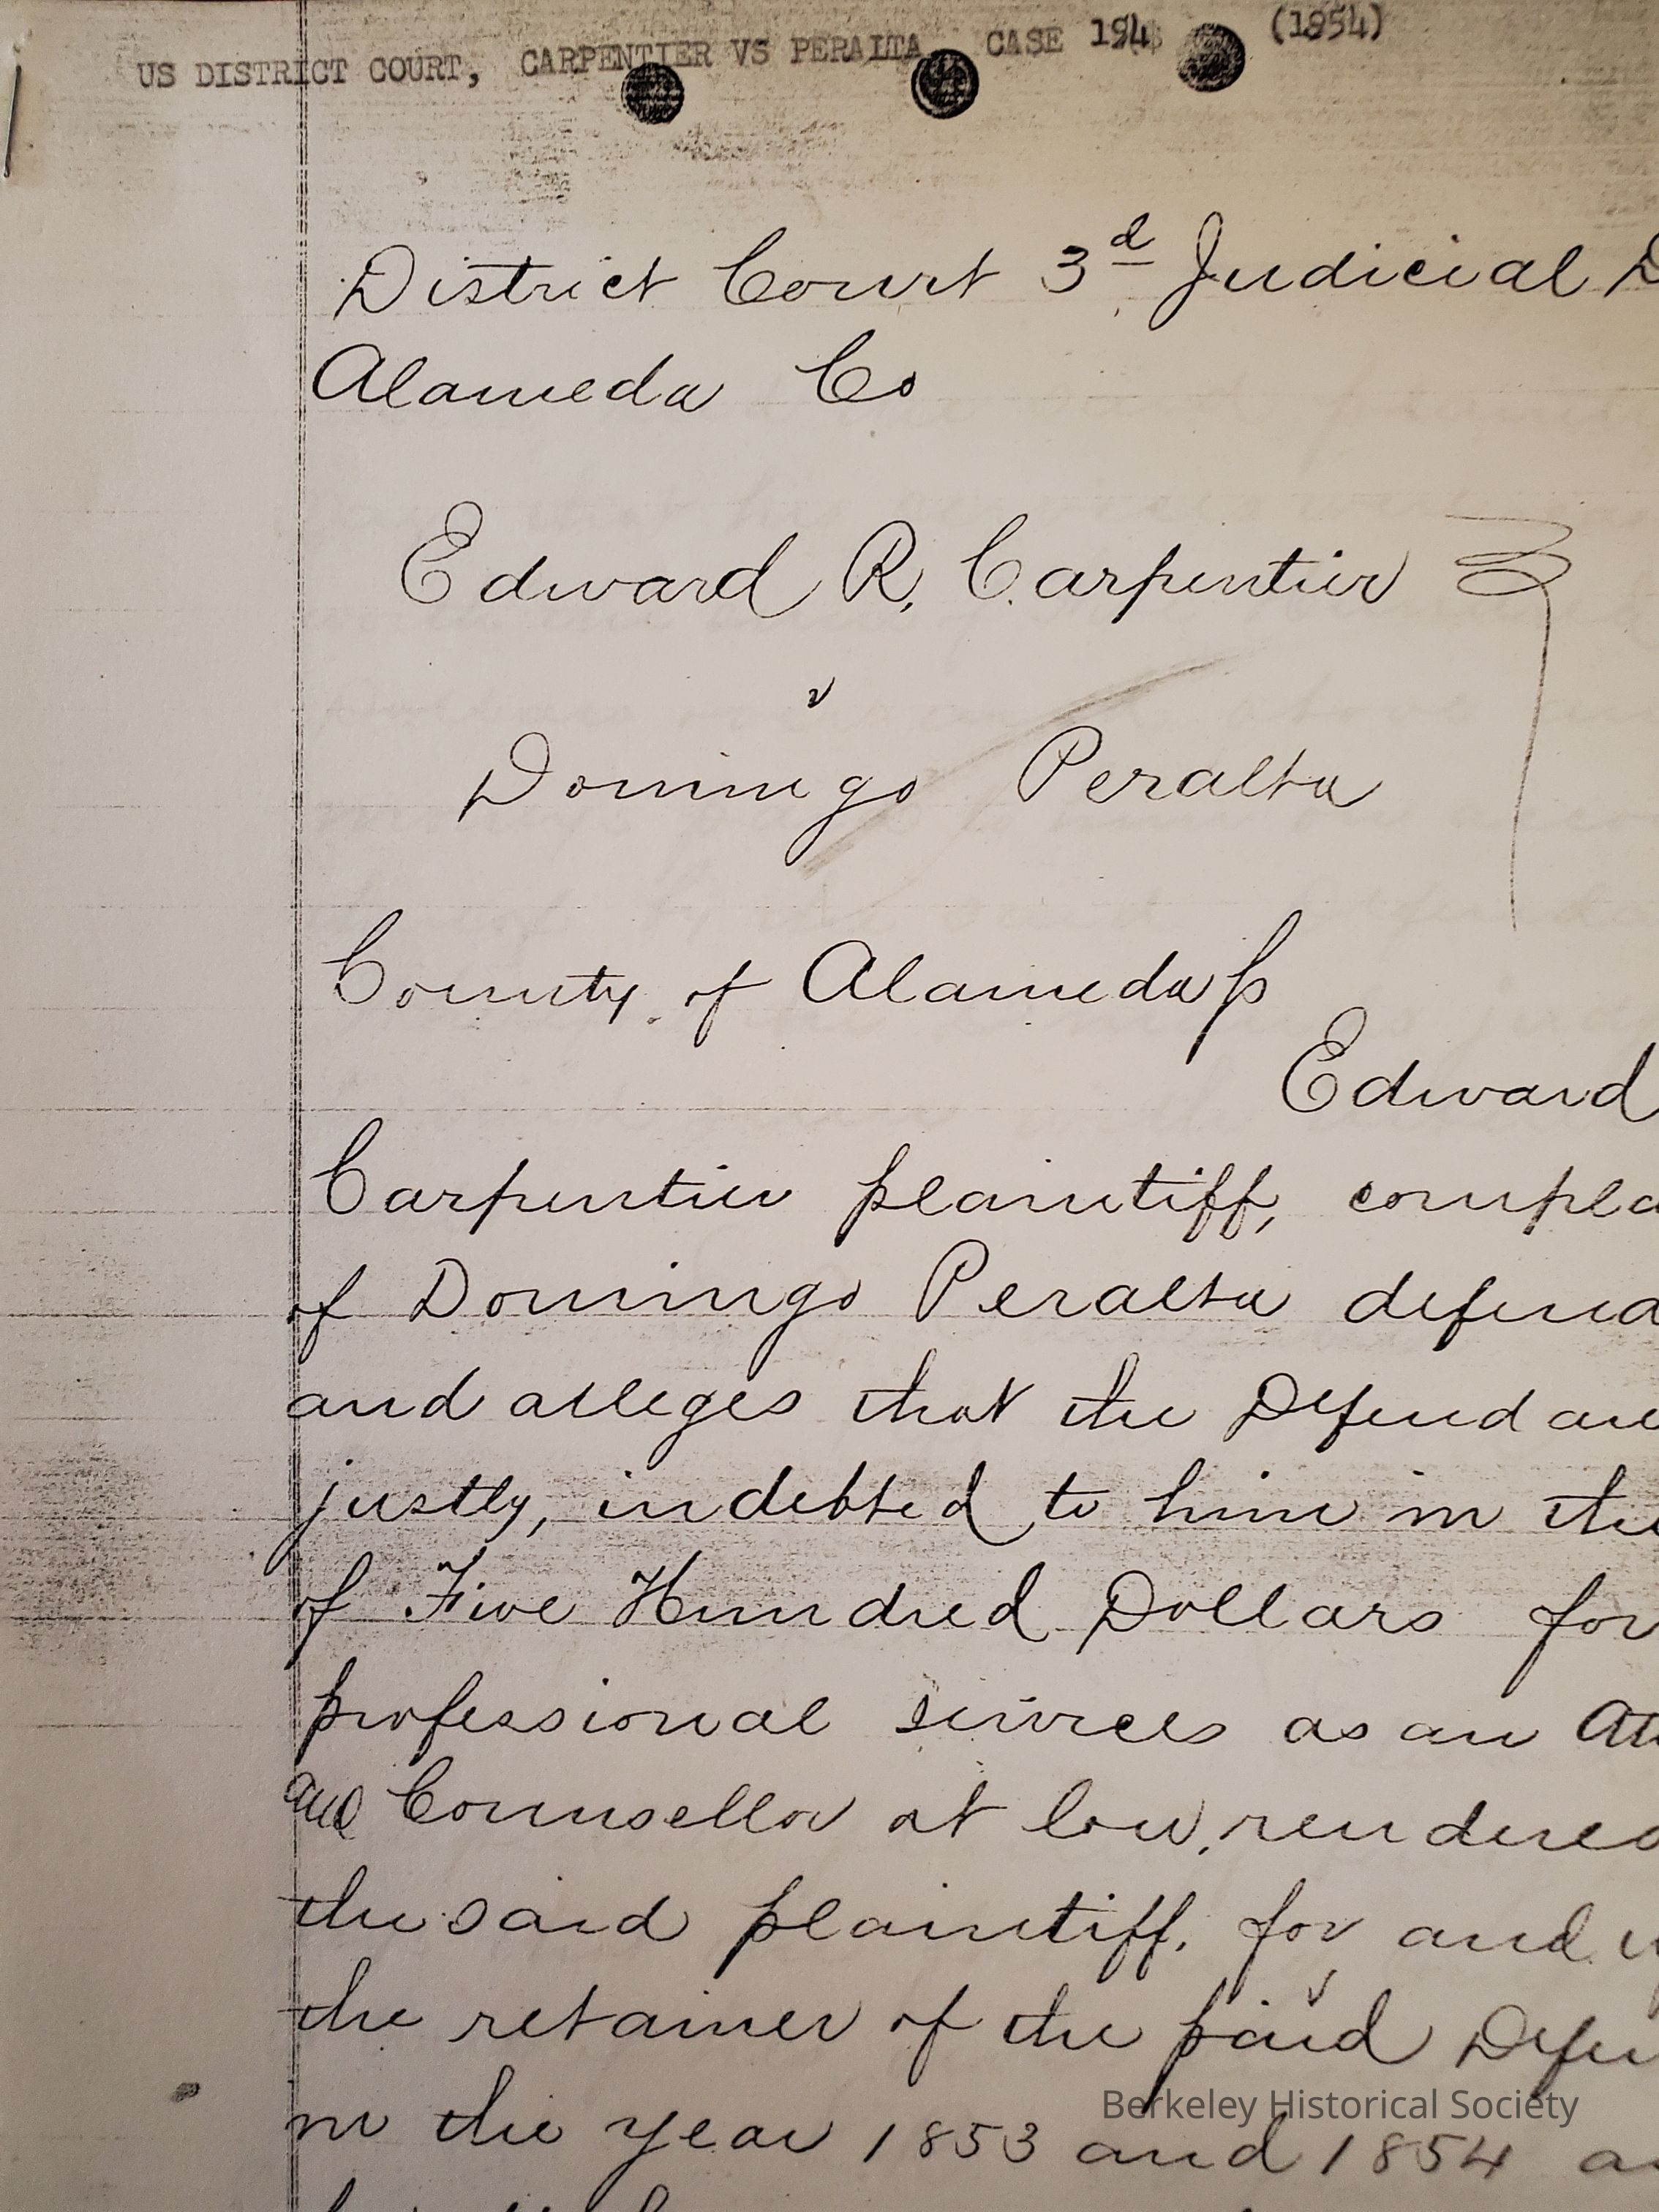 US DISTRICT COURT, CARPENTIER VS PERALTA CASE 194 (1854)
District Court 3d Judicial D
Alameda Co
Edward R. Carpentier
v
Domingo Peralta
County of Alameda ss
Edward
Carpentier plaintiff, compla
of Domingo Peralta defenda
and alleges that the Defendan
justly, indebted to him in the
of Five Hundred Dollars for
professional services as an Att
and Counsellor at law, rendered
the said plaintiff, for and u
the retainer of the said Defen
in the year 1853 and 1854 a
Berkeley Historical Society